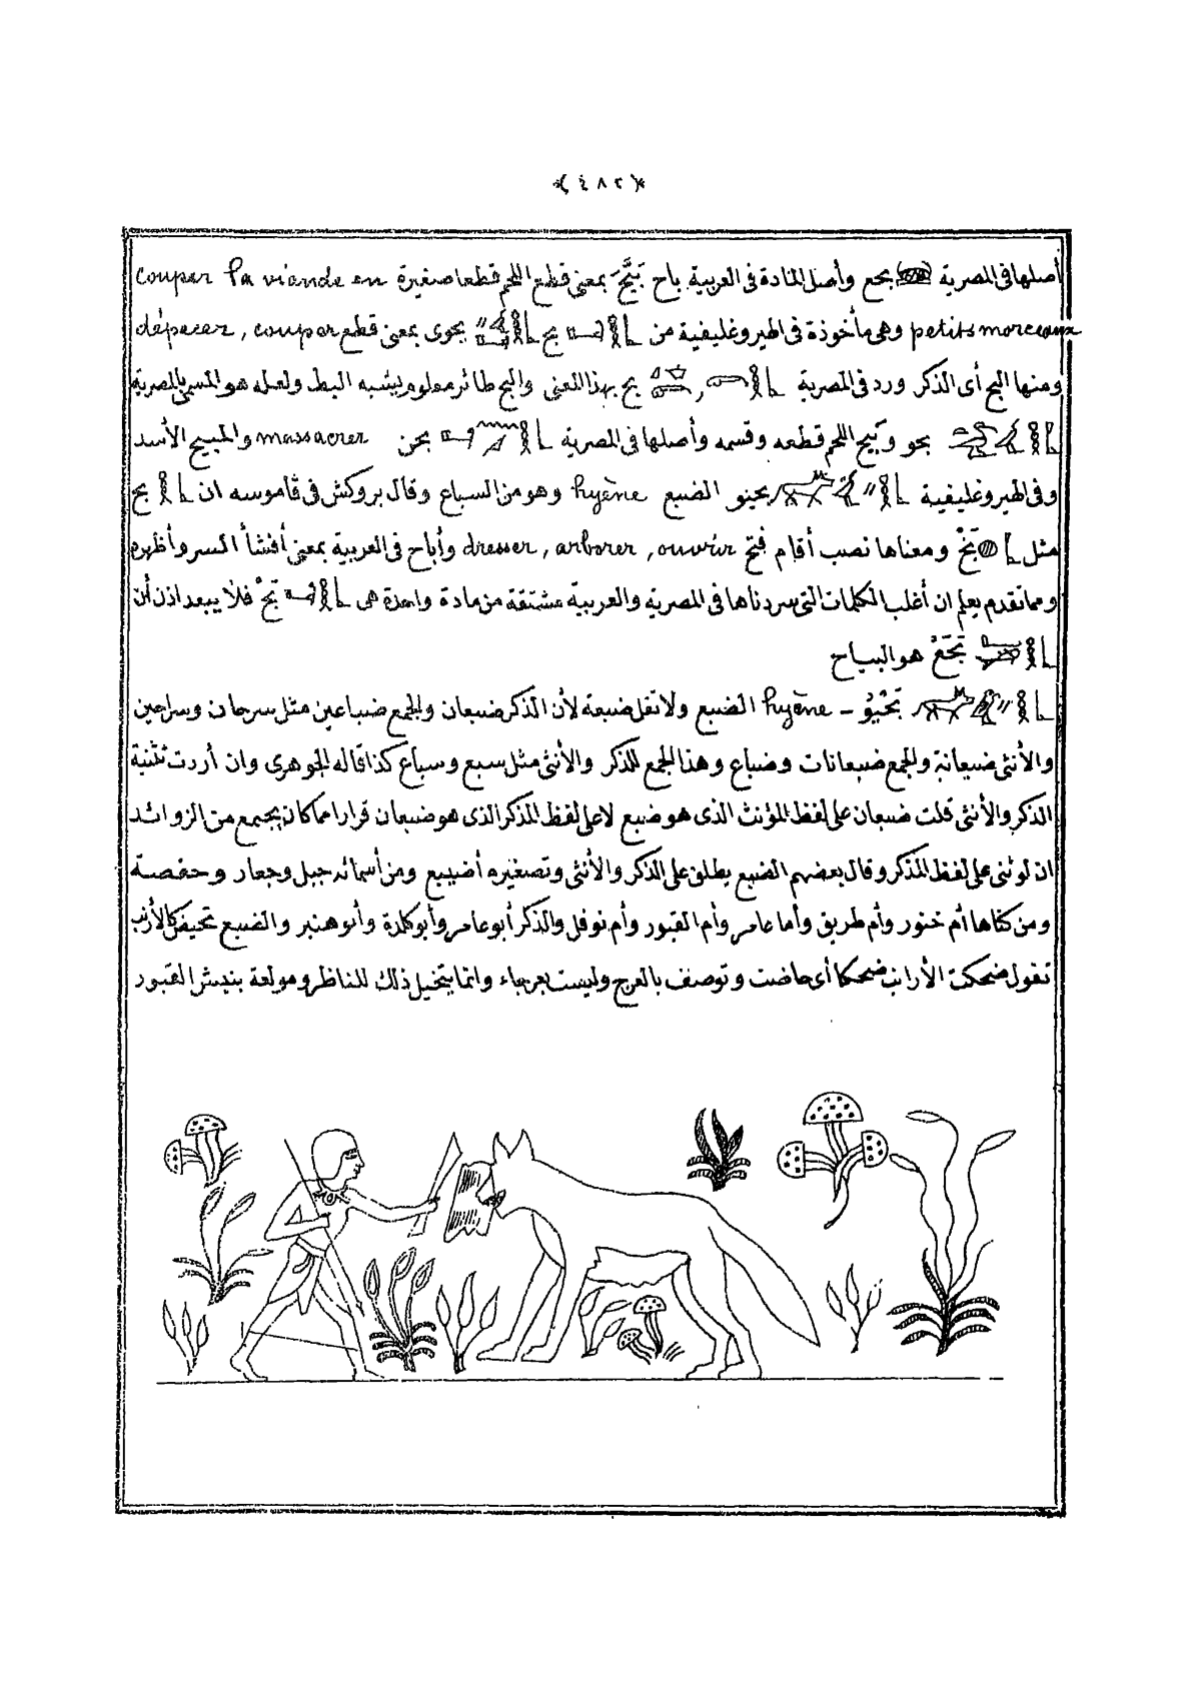 ﴿٤٨٢﴾
أصلها فى المصرية بجع وأصل المادة فى العربية باح بَيَّحَ بمعنى قطع اللحم قطعا صغيرة couper la viande en
petits morceaux وهى مأخوذة فى الهيروغليفية من بح بحوى بمعنى قطع dépecer, couper
ومنها البح أى الذكر ورد فى المصرية بح بهذا المعنى والبح طائر معلوم يشبه البط ولعله هو المسمى بالمصرية
بحو وبيح اللحم قطعه وقسمه وأصلها فى المصرية بحن massacrer والمبيح الأسد
وفى الهيروغليفية بحيتو الضبع hyène وهو من السباع وقال بروكش فى قاموسه ان بح
مثل بَخْ ومعناها نصب أقام فتح dresser, arborer, ouvrir وأباح فى العربية بمعنى أفشأ السر وأظهره
ومما تقدم يعلم ان أغلب الكلمات التى سردناها فى المصرية والعربية مشتقة من مادة واحدة هى بَحْ فلا يبعد اذن أن
بَحَعْ هو البياح
بَحْيُوْ - hyène الضبع ولا تقل ضبعة لأن الذكر ضبعان والجمع ضباعين مثل سرحان وسراحين
والأنثى ضبعانة والجمع ضبعانات وضباع وهذا الجمع للذكر والأنثى مثل سبع وسباع كذا قاله الجوهرى وان أردت تثنية
الذكر والأنثى قلت ضبعان على لفظ المؤنث الذى هو ضبع لا على لفظ المذكر الذى هو ضبعان قرارا مما كان يجتمع من الزوائد
ان لو ثنى على لفظ المذكر وقال بعضهم الضبع يطلق على الذكر والأنثى وتصغيره أضيبع ومن أسمائه جيل وجعار وحفصة
ومن كناها أم خنور وأم طريق وأما عامر وأم القبور وأم نوفل والذكر أبو عامر وأبو كلدة وأبو هنبر والضبع تحيض كالأرنب
تقول ضحكت الأرانب ضحكا أى حاضت وتوصف بالعرج وليست بعرجاء وانما يتخيل ذلك للناظر ومولعة بنبش القبور